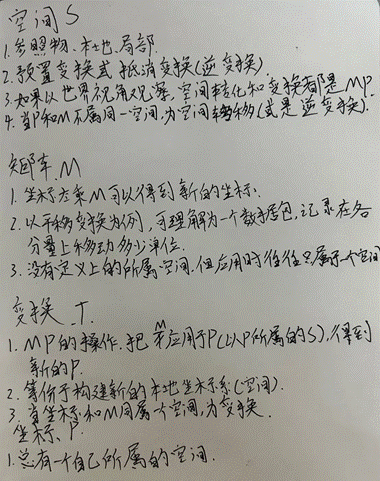 空间 S
1. 参照物、本地、局部.
2. 预置变换或抵消变换(逆变换)
3. 如果以世界视角观察, 空间转化和变换都是MP.
4. 当P和M不属同一空间, 为空间转移(或是逆变换).
矩阵 M
1. 坐标左乘M可以得到新的坐标.
2. 以平移变换为例, 可理解为一个数据包, 记录在各
分量上移动多少单位.
3. 没有定义上的所属空间, 但应用时往往只属于一个空间
变换 T.
1. MP的操作. 把M应用于P(以P所属的S), 得到
新的P.
2. 等价于构建新的本地坐标系(空间).
3. 当坐标和M同属一个空间, 为变换.
坐标、P
1. 总有一个自己所属的空间.